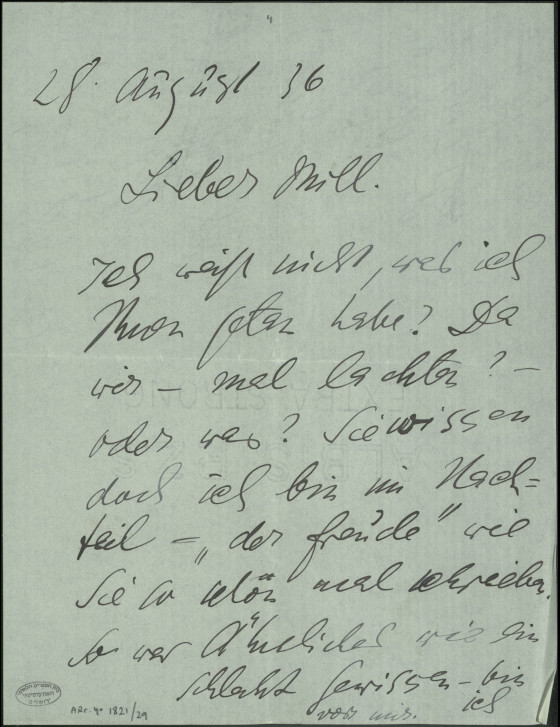 28. August 36
Lieber Mill.
Ich weiß nicht, was ich
Ihnen getan habe? Da
wir – mal lachten? –
oder was? Sie wissen
doch ich bin im Nach=
teil – „der freude" wie
Sie so schön mal schrieben.
So war Ähnliches wie ein
schlecht Gewissen – bin
ich
vor mir.
ARC. 4° 1821/29